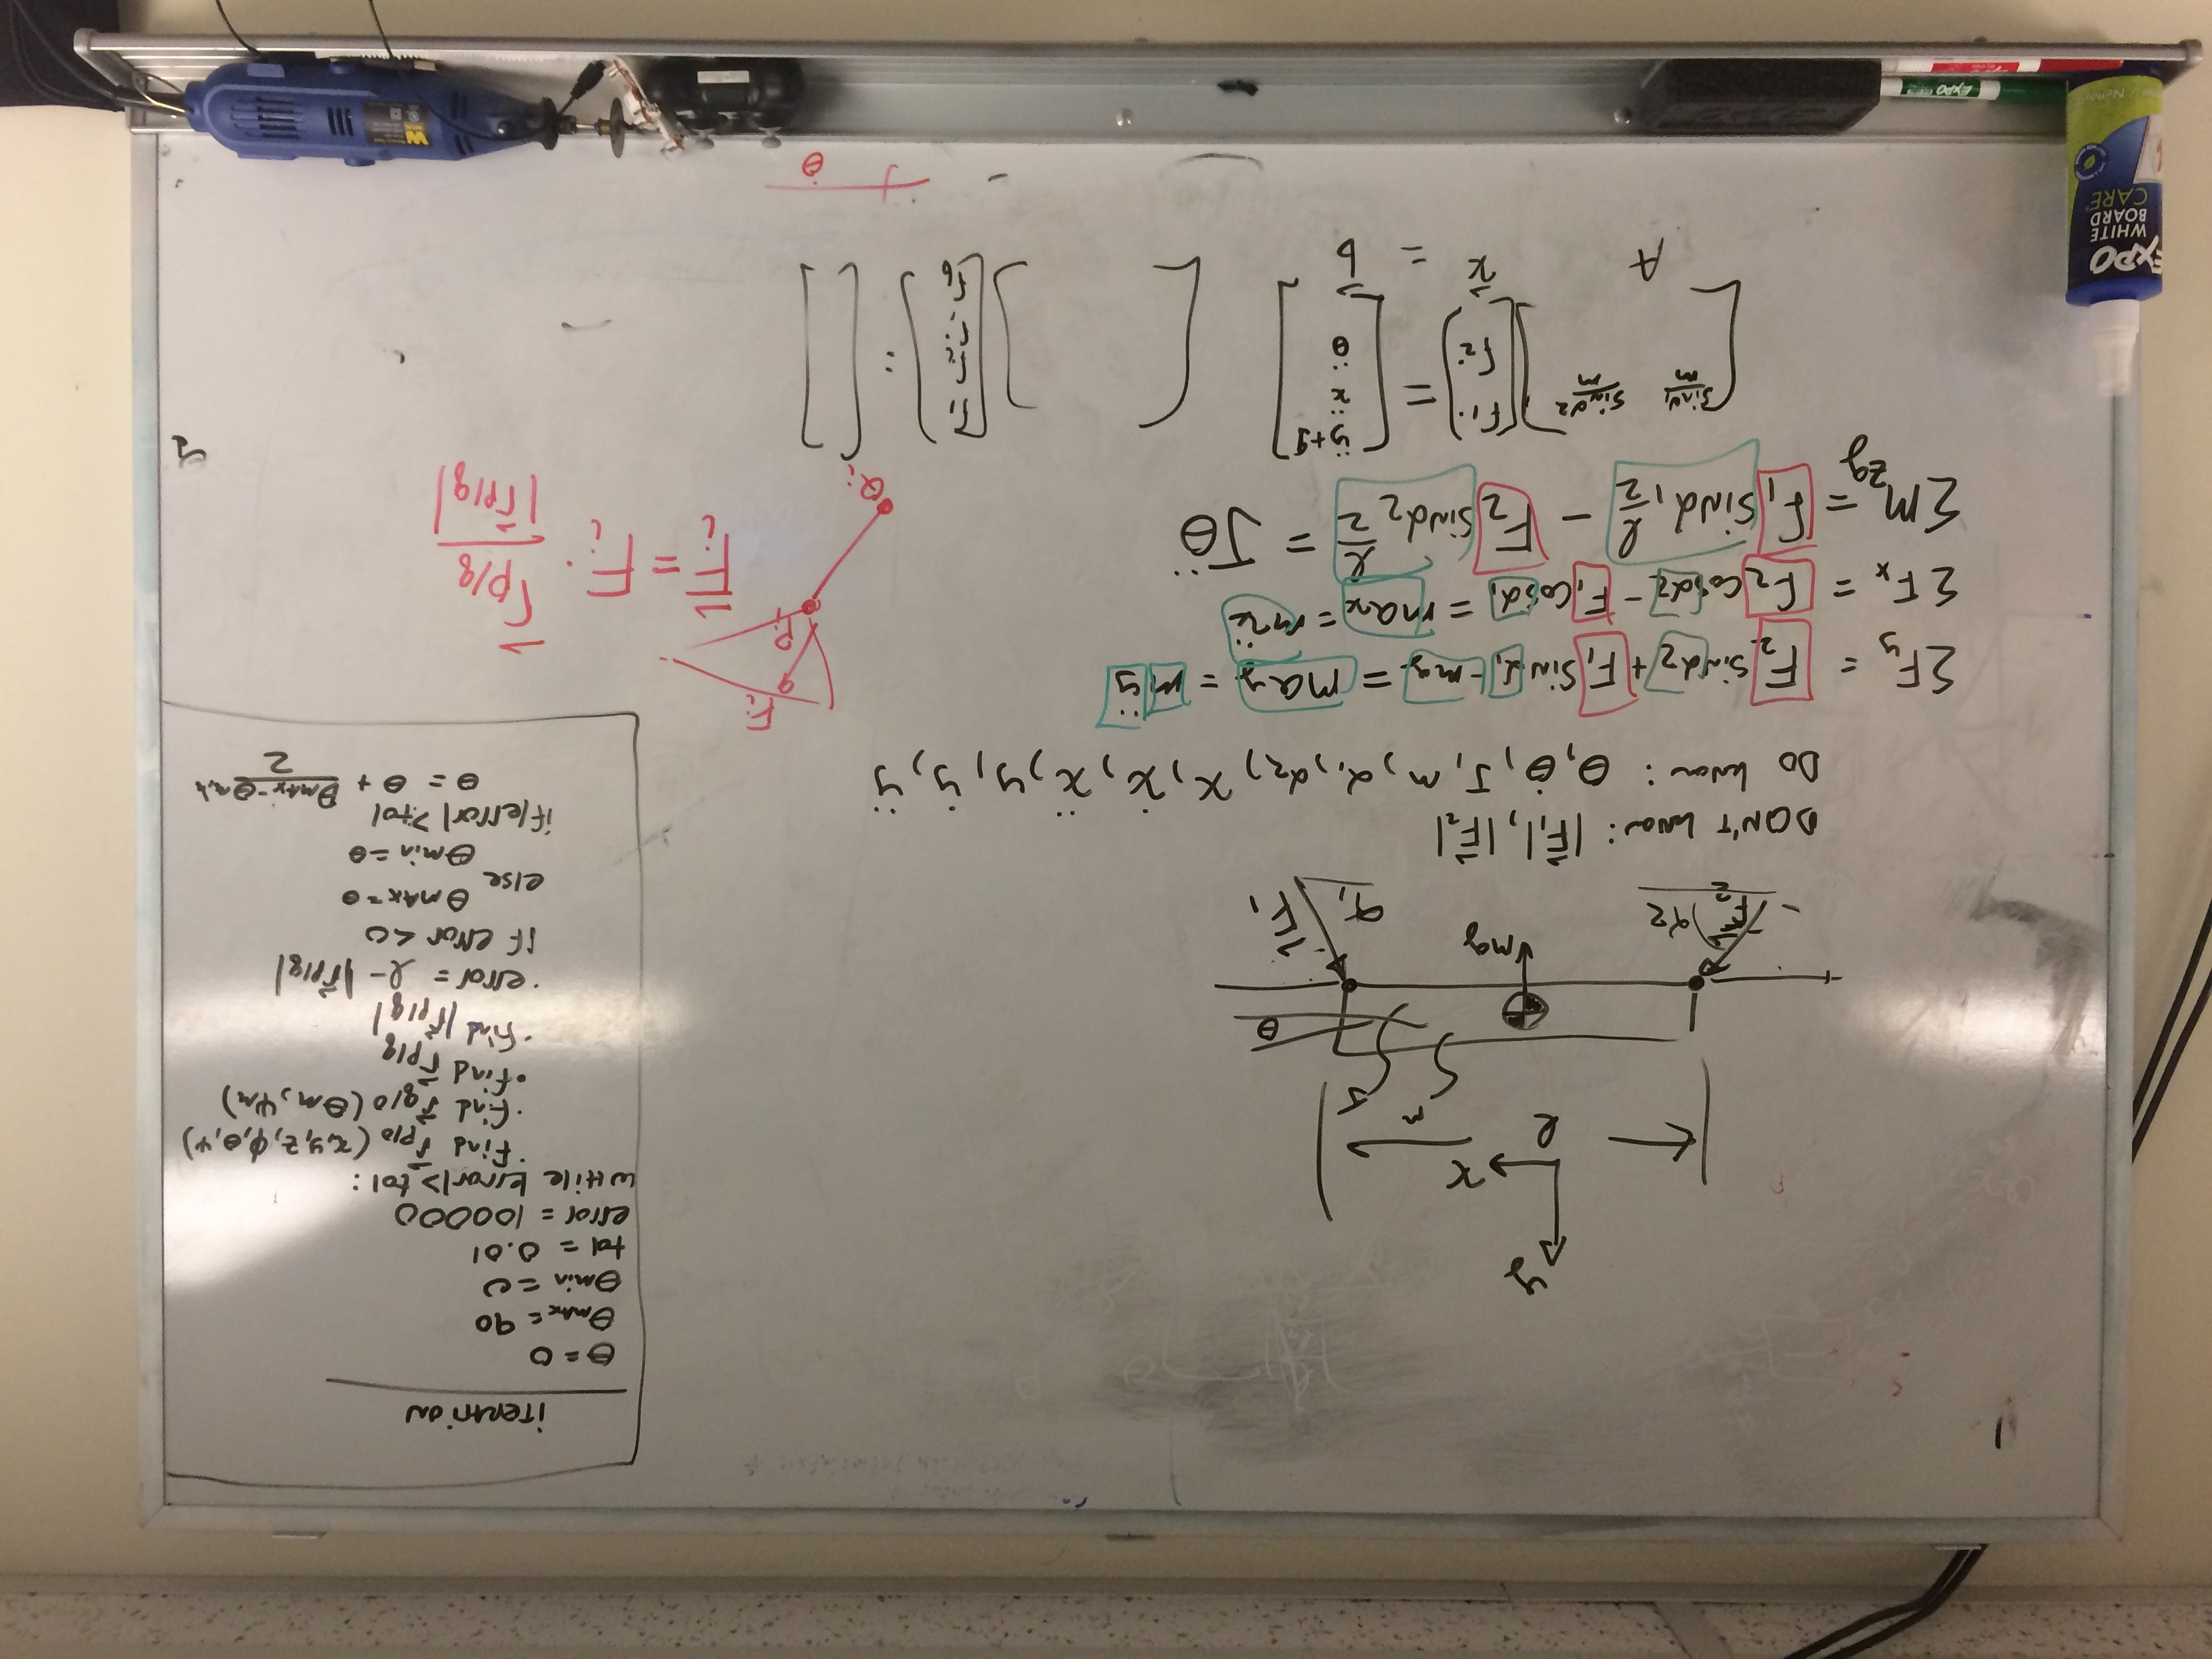 y
x
l
m
J
θ
mg
F⃗₂
α₂
α₁
F⃗₁
DON'T know: |F⃗₁|, |F⃗₂|
Do know: θ, θ̇, J, m, α₁, α₂, x, ẋ, ẍ, y, ẏ, ÿ
ΣF_y = F₂ sinα₂ + F₁ sinα₁ - mg = ma_y = mÿ
ΣF_x = F₂ cosα₂ - F₁ cosα₁ = ma_x = mẍ
ΣM_zg = F₁ sinα₁ l/2 - F₂ sinα₂ l/2 = Jθ̈
[sinα₁/m sinα₂/m] [F₁ F₂] = [ÿ+g ẍ θ̈]
A x⃗ = b⃗
[ ] [F₁ F₂ ⋮ F₆] = [ ]
iTERATiON
θ = 0
θmax = 90
θmin = 0
tol = 0.01
error = 100000
while |error| > tol:
· find r⃗p/o (x,y,z,ϕ,θ,ψ)
· find r⃗q/o (θm, ψm)
· find r⃗p/q
· find |r⃗p/q|
· error = l - |r⃗p/q|
if error < 0
θmax = θ
else
θmin = θ
if |error| > tol
θ = θ + (θmax - θmin)/2
Fᵢ
Pᵢ
Qᵢ
F⃗ᵢ = Fᵢ · r⃗p/q / |r⃗p/q|
y
θ
EXPO
WHITE
BOARD
CARE
EXPO
W